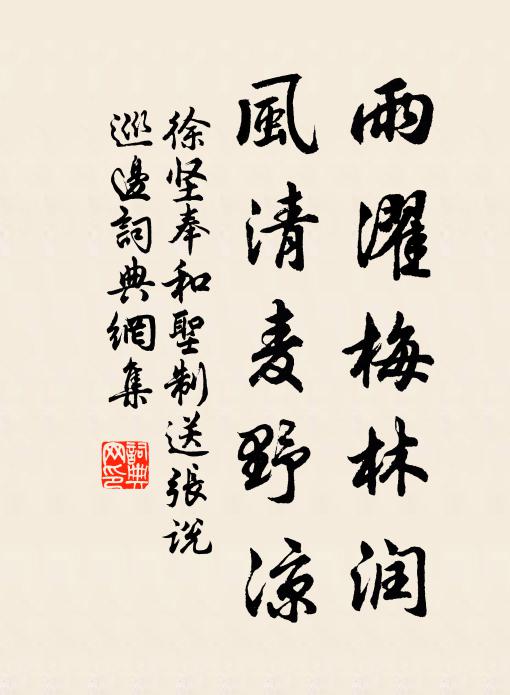 雨濯梅林润
風清麦野凉
徐坚奉和聖制送張说
巡邊詞典網集
詞典
网印